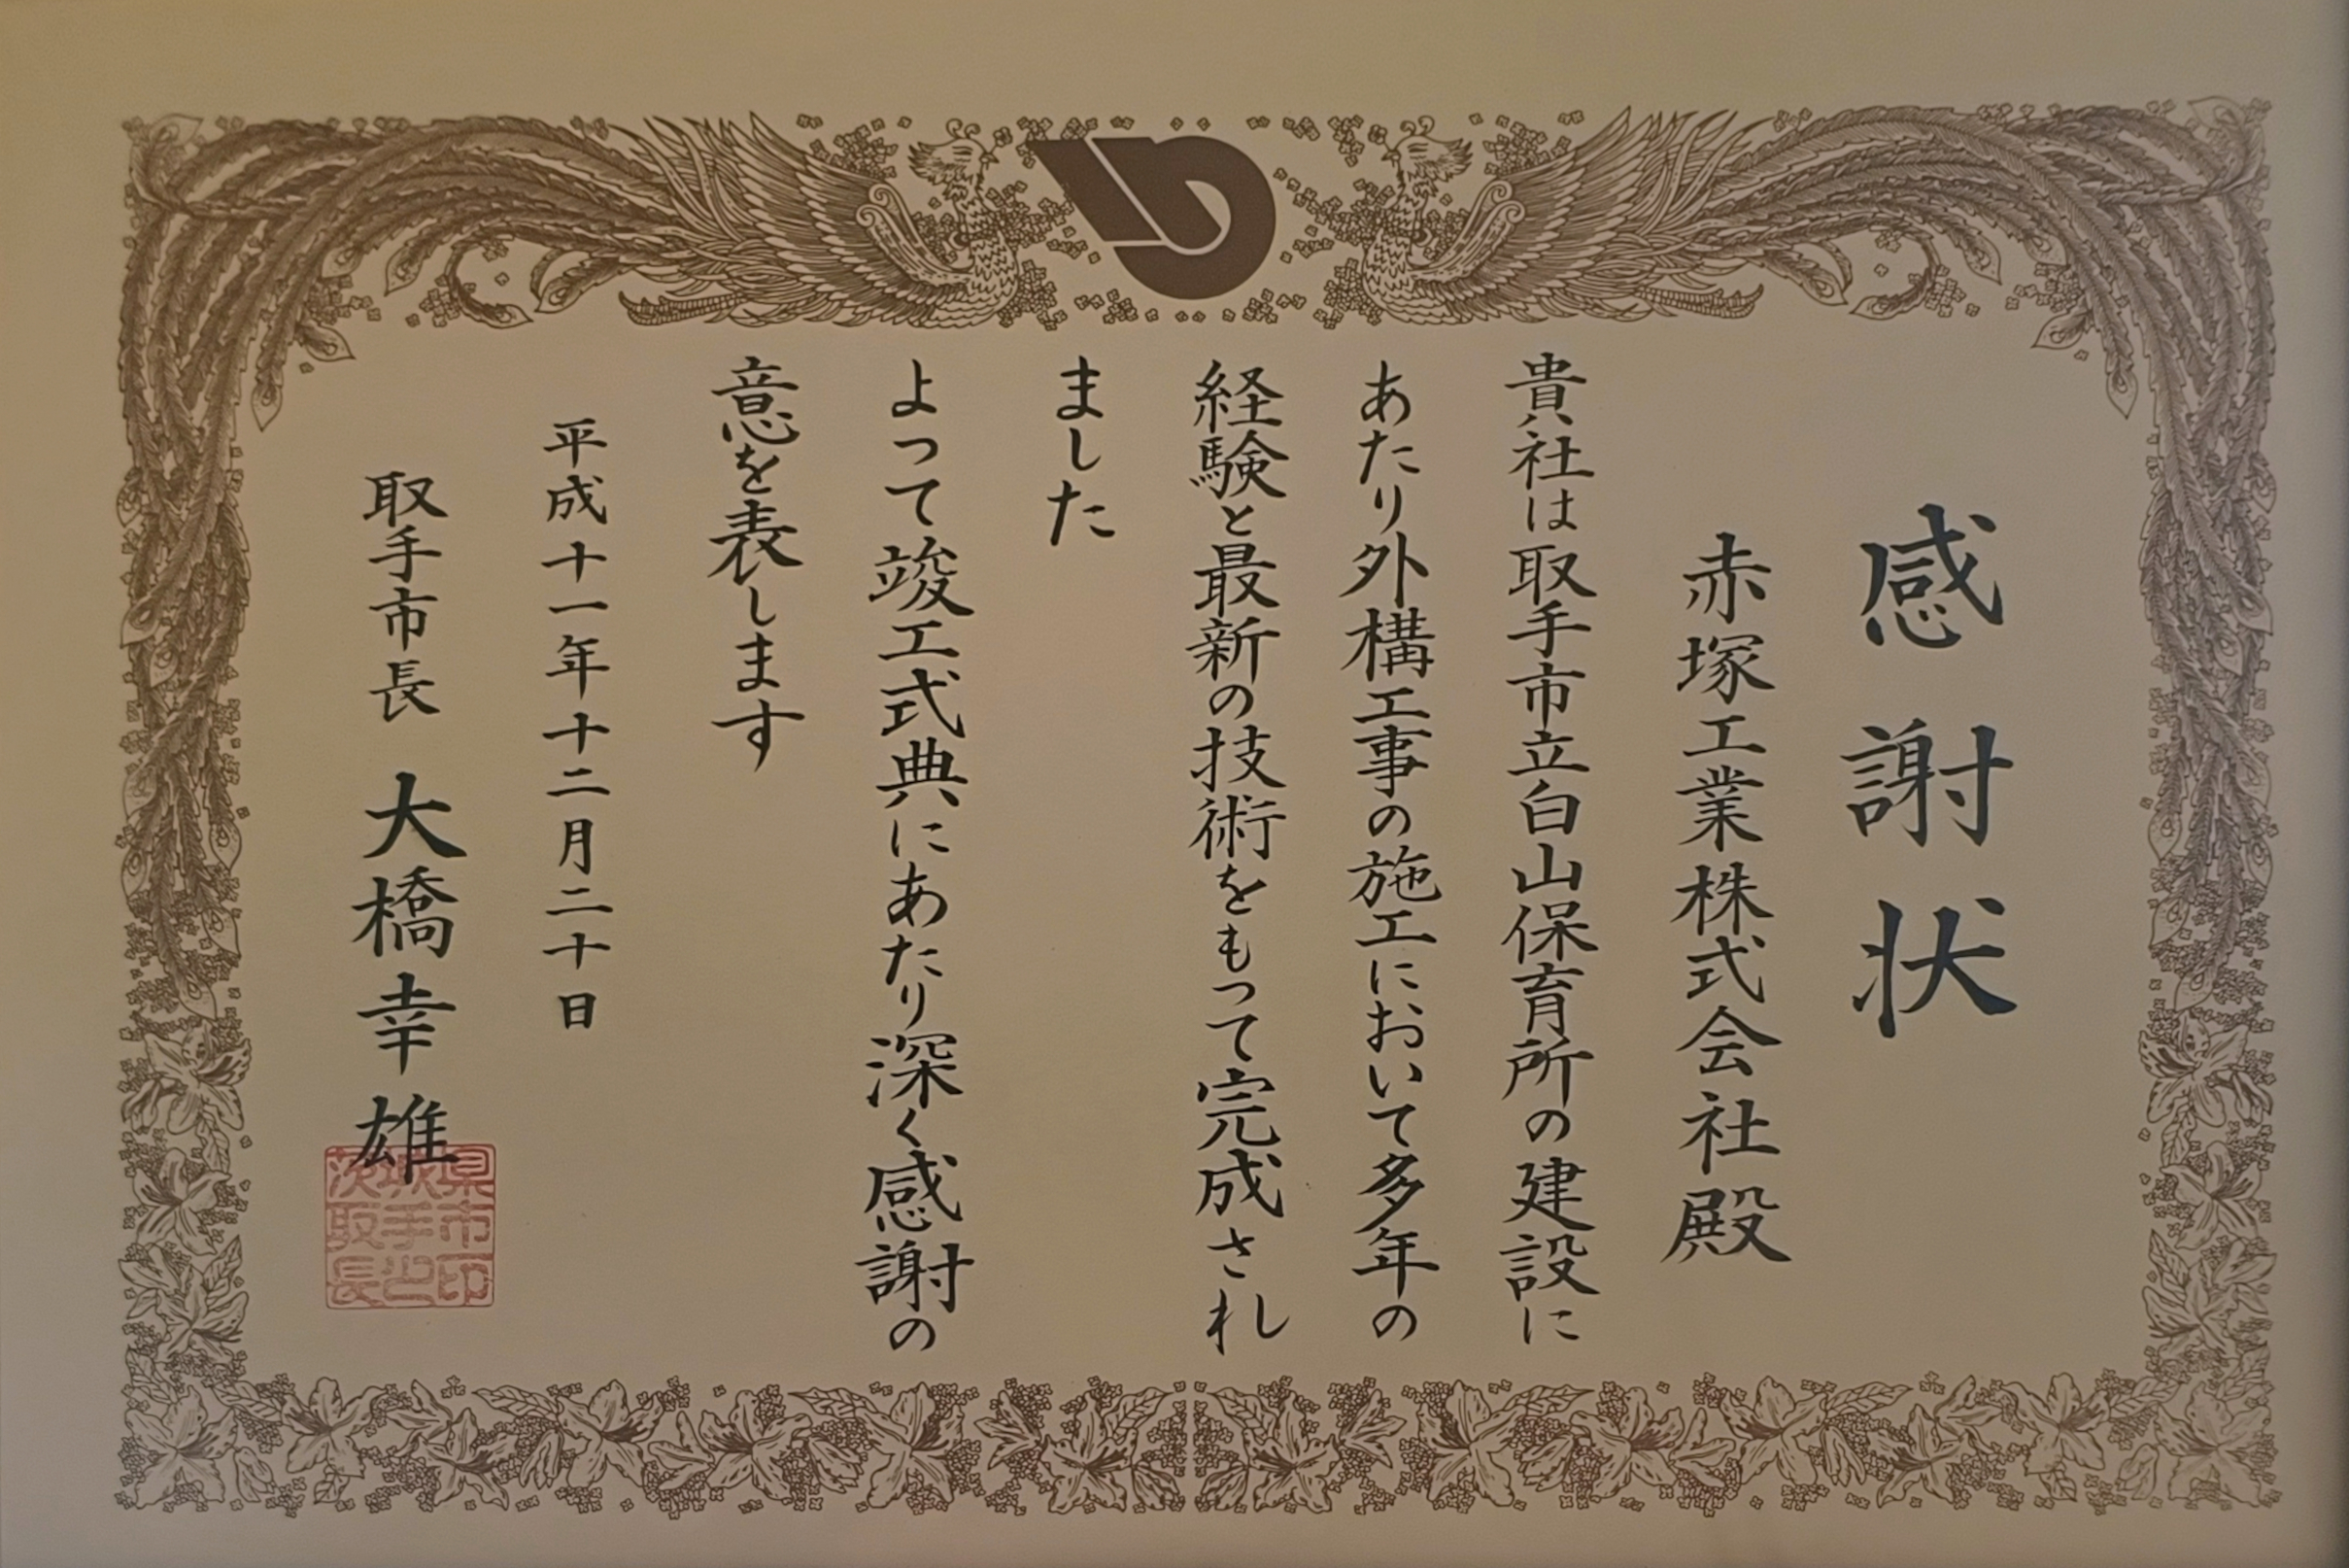 感謝状
赤塚工業株式会社殿
貴社は取手市立白山保育所の建設に
あたり外構工事の施工において多年の
経験と最新の技術をもって完成され
ました
よって竣工式典にあたり深く感謝の
意を表します
平成十一年十二月二十日
取手市長 大橋幸雄
茨城県
取手市
長之印